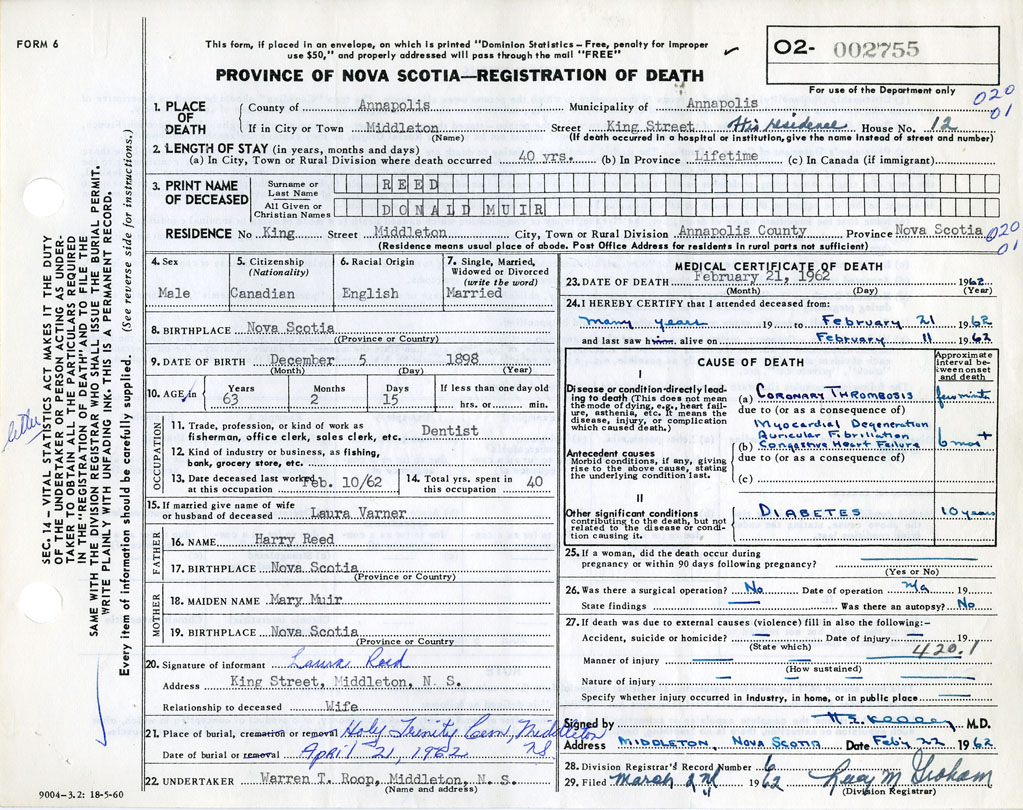 FORM 6
This form, if placed in an envelope, on which is printed "Dominion Statistics – Free, penalty for improper
use $50," and properly addressed will pass through the mail "FREE"
PROVINCE OF NOVA SCOTIA—REGISTRATION OF DEATH
O2- 002755
For use of the Department only
020
01
SEC. 14 – VITAL STATISTICS ACT MAKES IT THE DUTY
OF THE UNDERTAKER OR PERSON ACTING AS UNDER-
TAKER TO OBTAIN ALL THE PARTICULARS REQUIRED
IN THE "REGISTRATION OF DEATH" AND TO FILE THE
SAME WITH THE DIVISION REGISTRAR WHO SHALL ISSUE THE BURIAL PERMIT.
WRITE PLAINLY WITH UNFADING INK. THIS IS A PERMANENT RECORD.
Every item of information should be carefully supplied. (See reverse side for instructions.)
letter
1. PLACE OF DEATH
County of Annapolis Municipality of Annapolis
If in City or Town Middleton Street King Street His residence House No. 12
(Name) (If death occurred in a hospital or institution, give the name instead of street and number)
2. LENGTH OF STAY (in years, months and days)
(a) In City, Town or Rural Division where death occurred 40 yrs. (b) In Province Lifetime (c) In Canada (if immigrant)
3. PRINT NAME OF DECEASED
Surname or Last Name REED
All Given or Christian Names DONALD MUIR
RESIDENCE No King Street Middleton City, Town or Rural Division Annapolis County Province Nova Scotia
020
01
(Residence means usual place of abode. Post Office Address for residents in rural parts not sufficient)
4. Sex
Male
5. Citizenship
(Nationality)
Canadian
6. Racial Origin
English
7. Single, Married, Widowed or Divorced
(write the word)
Married
8. BIRTHPLACE Nova Scotia
(Province or Country)
9. DATE OF BIRTH December 5 1898
(Month) (Day) (Year)
10. AGE in
Years Months Days If less than one day old
63 2 15 hrs. or min.
OCCUPATION
11. Trade, profession, or kind of work as
fisherman, office clerk, sales clerk, etc. Dentist
12. Kind of industry or business, as fishing,
bank, grocery store, etc.
13. Date deceased last worked
at this occupation Feb. 10/62
14. Total yrs. spent in
this occupation 40
15. If married give name of wife
or husband of deceased Laura Varner
FATHER
16. NAME Harry Reed
17. BIRTHPLACE Nova Scotia
(Province or Country)
MOTHER
18. MAIDEN NAME Mary Muir
19. BIRTHPLACE Nova Scotia
(Province or Country)
20. Signature of informant Laura Reed
Address King Street, Middleton, N. S.
Relationship to deceased Wife
21. Place of burial, cremation or removal Holy Trinity Cem, Middleton
NS.
Date of burial or removal April 21, 1962
22. UNDERTAKER Warren T. Roop, Middleton, N. S.
(Name and address)
9004–3.2: 18-5-60
MEDICAL CERTIFICATE OF DEATH
23. DATE OF DEATH February 21, 1962 1962
(Month) (Day) (Year)
24. I HEREBY CERTIFY that I attended deceased from:
many years 19 to February 21 1962
and last saw him alive on February 11 1962
CAUSE OF DEATH
Approximate interval between onset and death
I
Disease or condition directly lead-
ing to death (This does not mean
the mode of dying, e.g., heart fail-
ure, asthenia, etc. It means the
disease, injury, or complication
which caused death.)
(a) CORONARY THROMBOSIS few mints
due to (or as a consequence of)
Myocardial Degeneration
Auricular Fibrillation
(b) Congestive Heart Failure 6 mos +
due to (or as a consequence of)
(c)
Antecedent causes
Morbid conditions, if any, giving
rise to the above cause, stating
the underlying condition last.
II
Other significant conditions
contributing to the death, but not
related to the disease or condi-
tion causing it.
DIABETES 10 years
25. If a woman, did the death occur during
pregnancy or within 90 days following pregnancy?
(Yes or No)
26. Was there a surgical operation? No Date of operation n/a 19
State findings — Was there an autopsy? No
27. If death was due to external causes (violence) fill in also the following:–
Accident, suicide or homicide? — Date of injury — 19
(State which)
420.1
Manner of injury
(How sustained)
Nature of injury
Specify whether injury occurred in industry, in home, or in public place
Signed by M.D.
Address MIDDLETON, NOVA SCOTIA Date Feby 22 1962
28. Division Registrar's Record Number 6
29. Filed March 2nd 1962 Lucy M Graham
(Division Registrar)